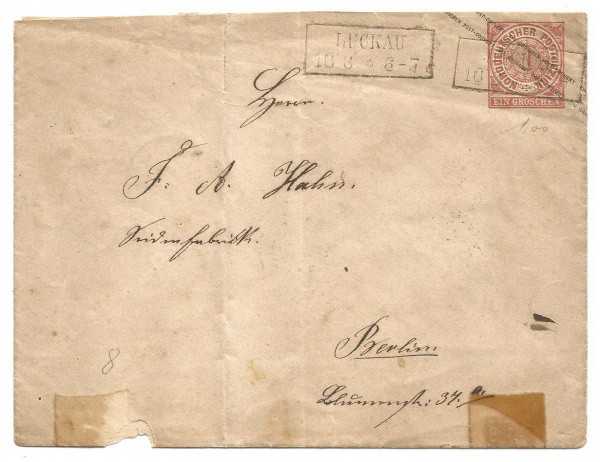 LUCKAU
10 6 * 6-7
10
NORDDEUTSCHER POSTBEZIRK
1
EIN GROSCHEN
1,00
Herrn.
F: A. Hahn.
Seidenfabrik.
Berlin.
Blumenstr: 37.a.
8